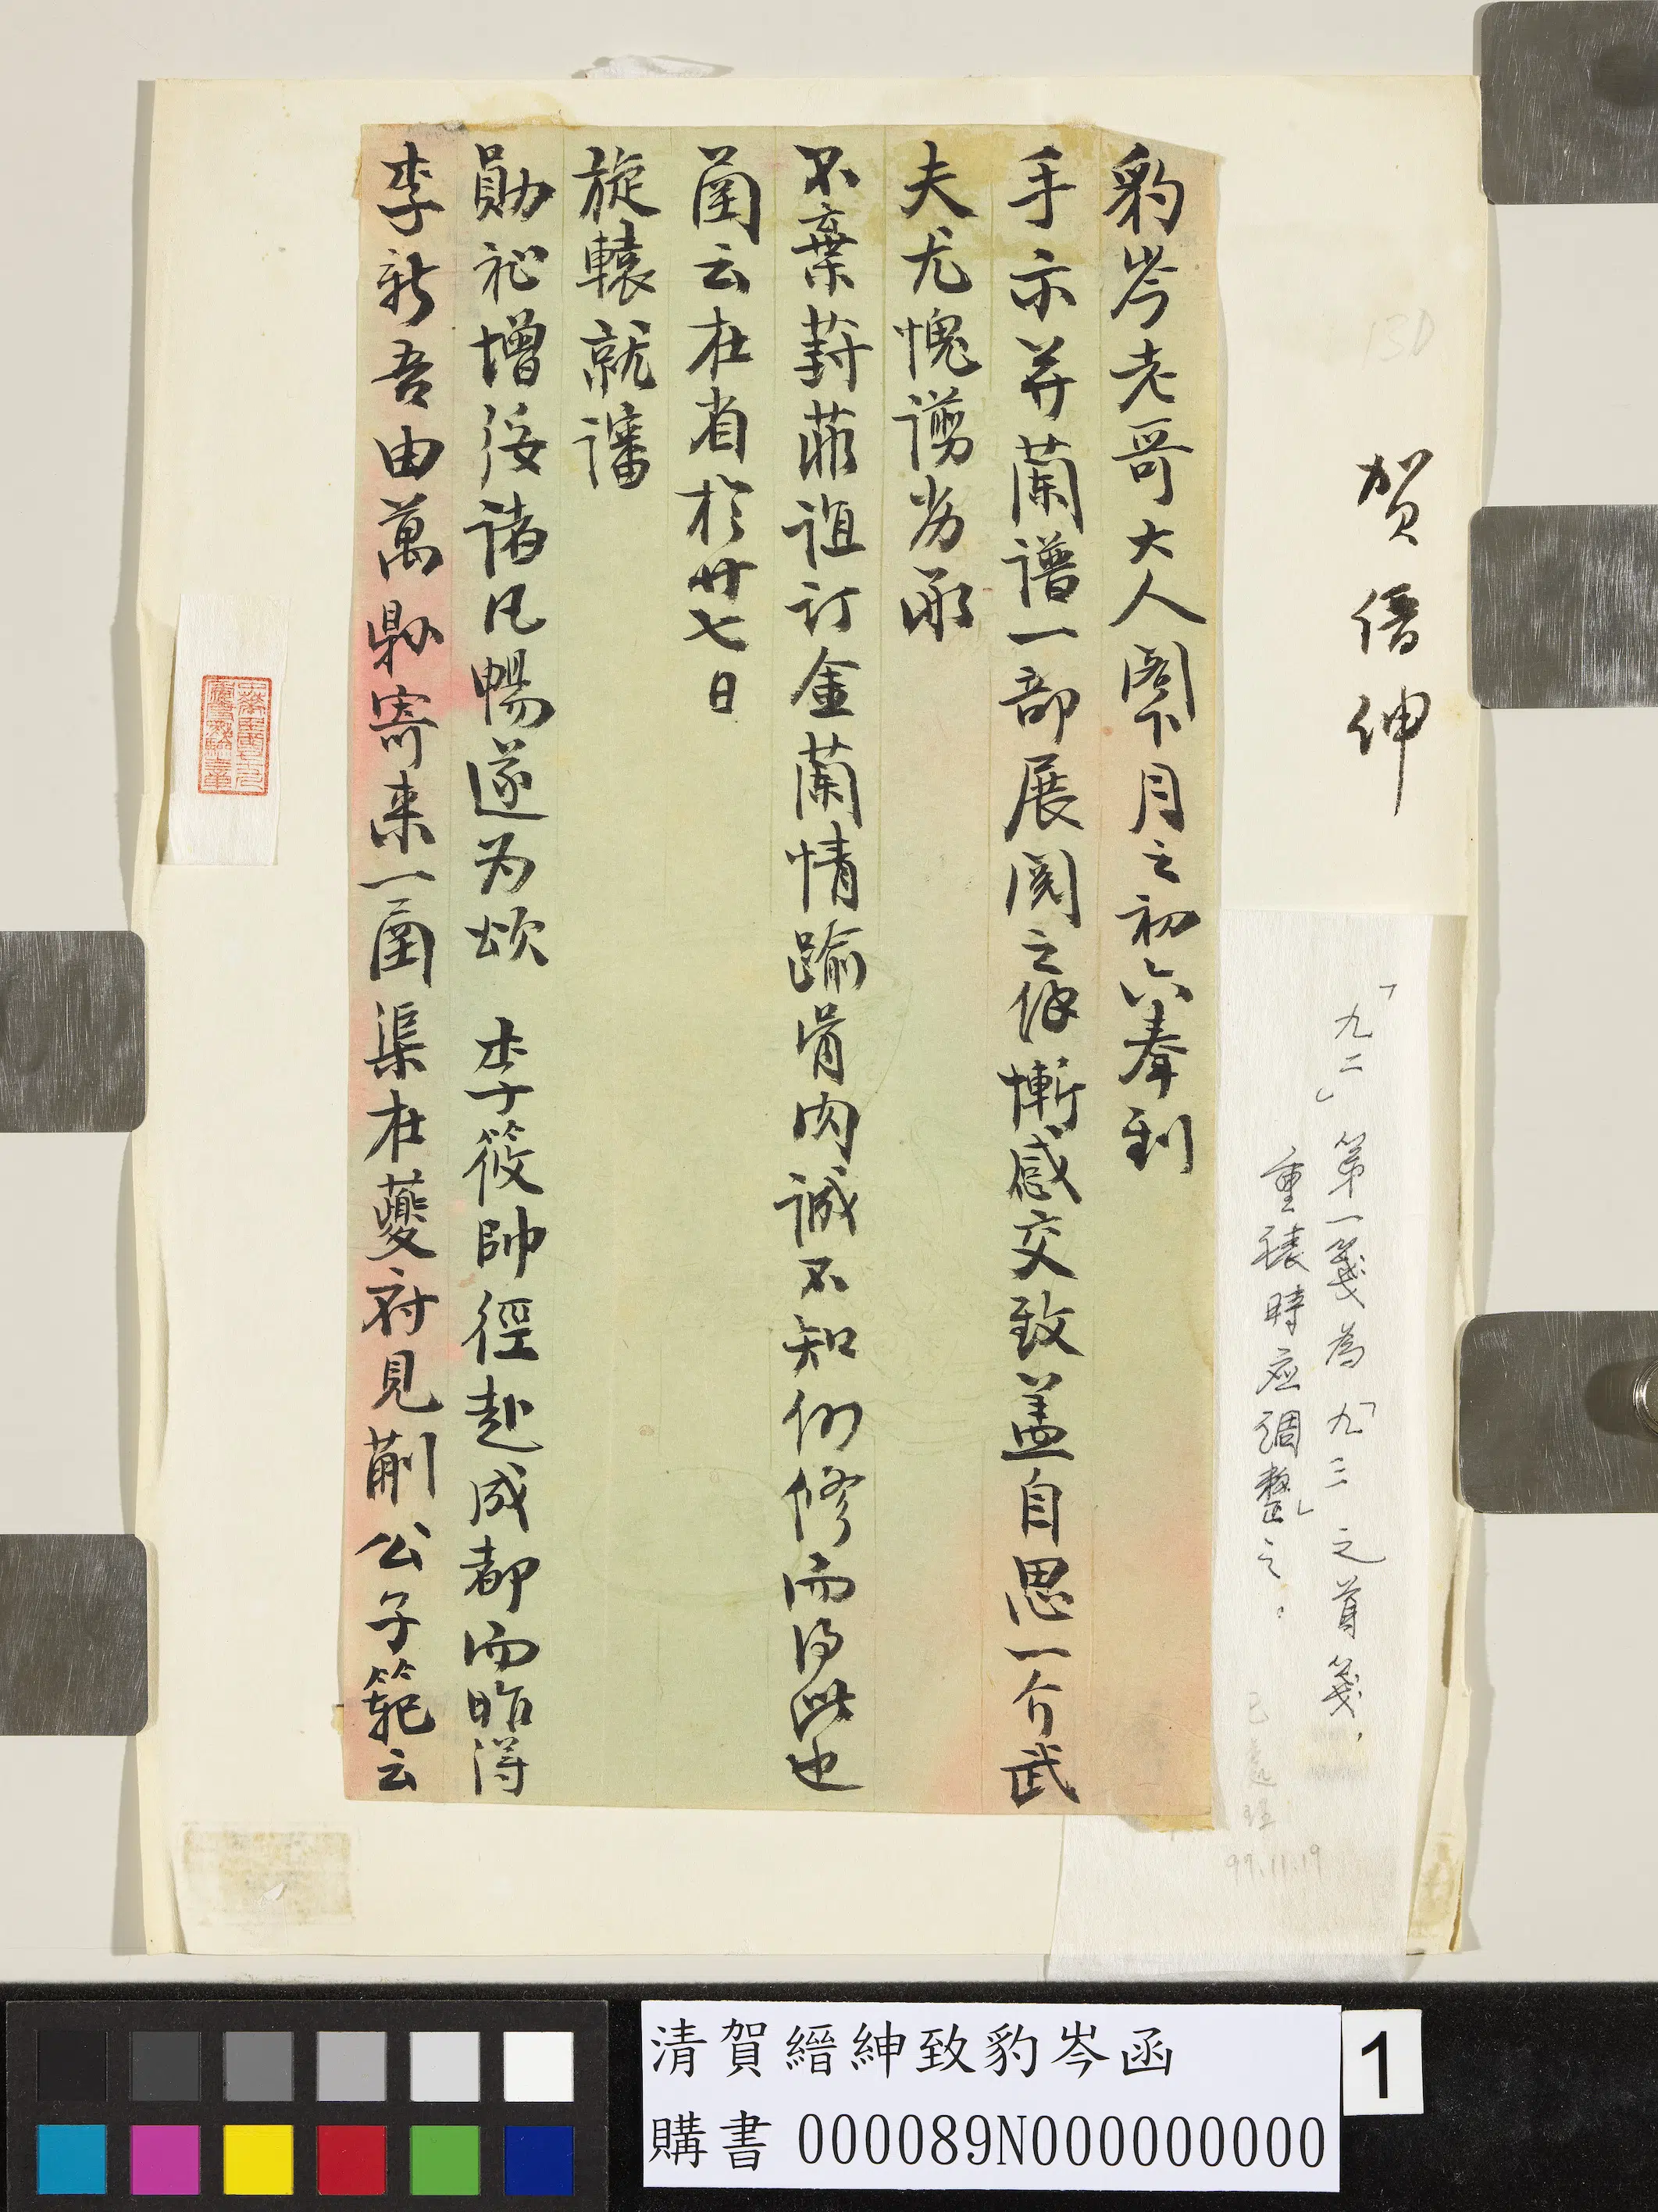 賀縉紳
「九二」第一箋為「九三」之首箋,
重裱時应調整之。
99.11.19
豹岑老哥大人閣下月之初六奉到
手示并蘭譜一部展閱之餘慚感交致盖自思一介武
夫尤愧謭劣承
不棄葑菲誼訂金蘭情踰骨肉誠不知何修而得此也
圅云在省於廿七日
旋轅就讅
勛祉增綏諸凡暢遂为頌 李筱帥徑赴成都而昨得
李新吾由萬縣寄来一圅渠在夔府見蒯公子範云
清賀縉紳致豹岑函
購書 000089N000000000
1